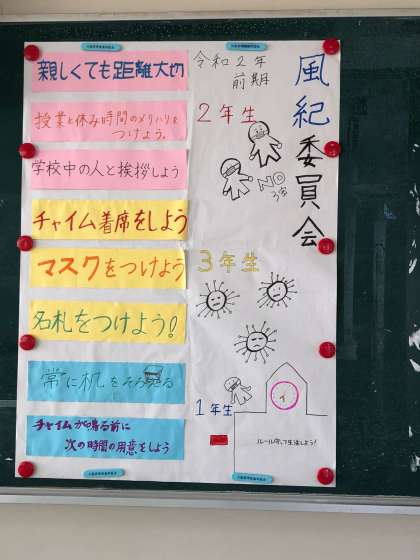 風紀委員会
令和2年
前期
2年生
親しくても距離大切
授業と休み時間のメリハリを
つけよう。
学校中の人と挨拶しよう
NO
3年生
チャイム着席をしよう
マスクをつけよう
名札をつけよう!
1年生
常に机をそろえる
チャイムが鳴る前に
次の時間の用意をしよう
ルール守って生活しよう!